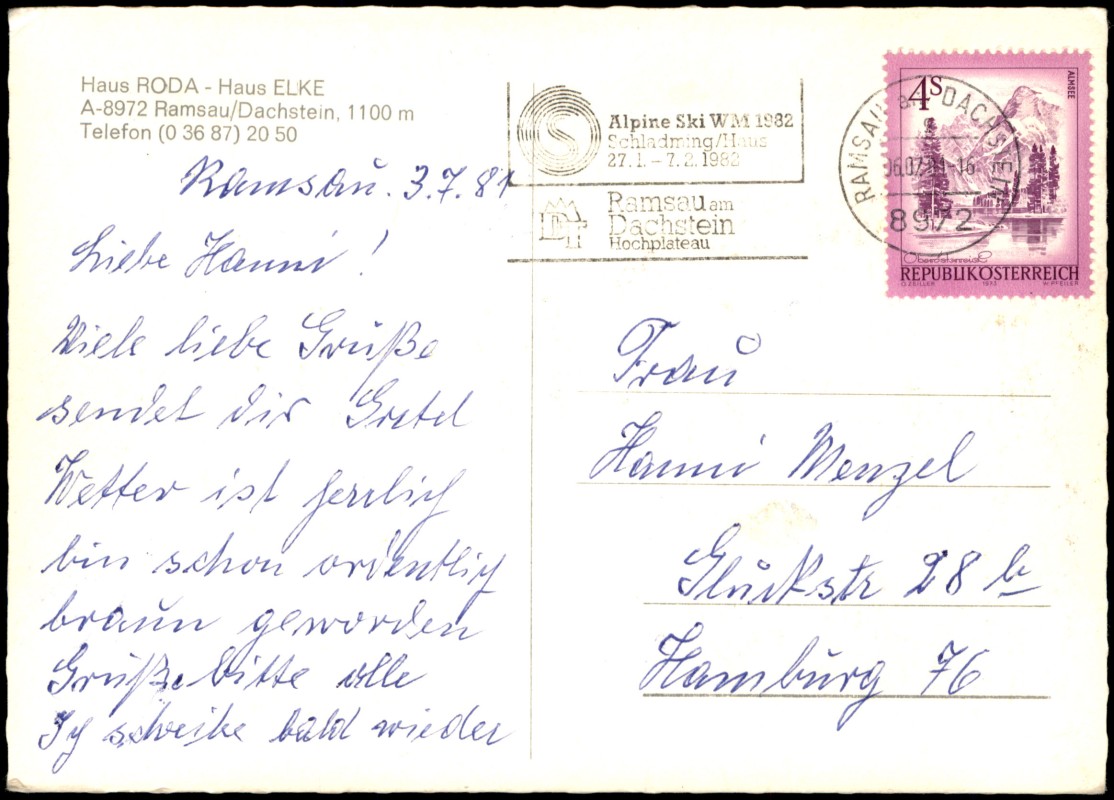 Haus RODA - Haus ELKE
A-8972 Ramsau/Dachstein, 1100 m
Telefon (0 36 87) 20 50
Ramsau. 3.7.81
Liebe Hanni!
Viele liebe Grüße
sendet dir Gretel
Wetter ist herrlich
bin schon ordentlich
braun geworden
Grüße bitte alle
Ich schreibe bald wieder
Alpine Ski WM 1982
Schladming/Haus
27.1. - 7.2.1982
Ramsau am
Dachstein
Hochplateau
RAMSAU am DACHSTEIN
8972
4S
ALMSEE
Oberösterreich
REPUBLIK ÖSTERREICH
O. ZEILLER 1973 W. PFEILER
Frau
Hanni Menzel
Gluckstr 28 b
Hamburg 76